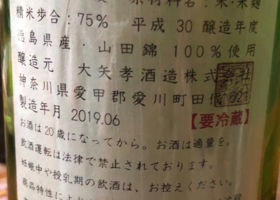 原材料名:米・米麹
精米歩合:75% 平成30醸造年度
徳島県産・山田錦100%使用
醸造元 大矢孝酒造株式会社
神奈川県愛甲郡愛川町田代521
製造年月 2019.06 【要冷蔵】
お酒は20歳になってから。お酒は適量を。
飲酒運転は法律で禁止されております。
妊娠中や授乳期の飲酒は、お控えください。
商品特性に